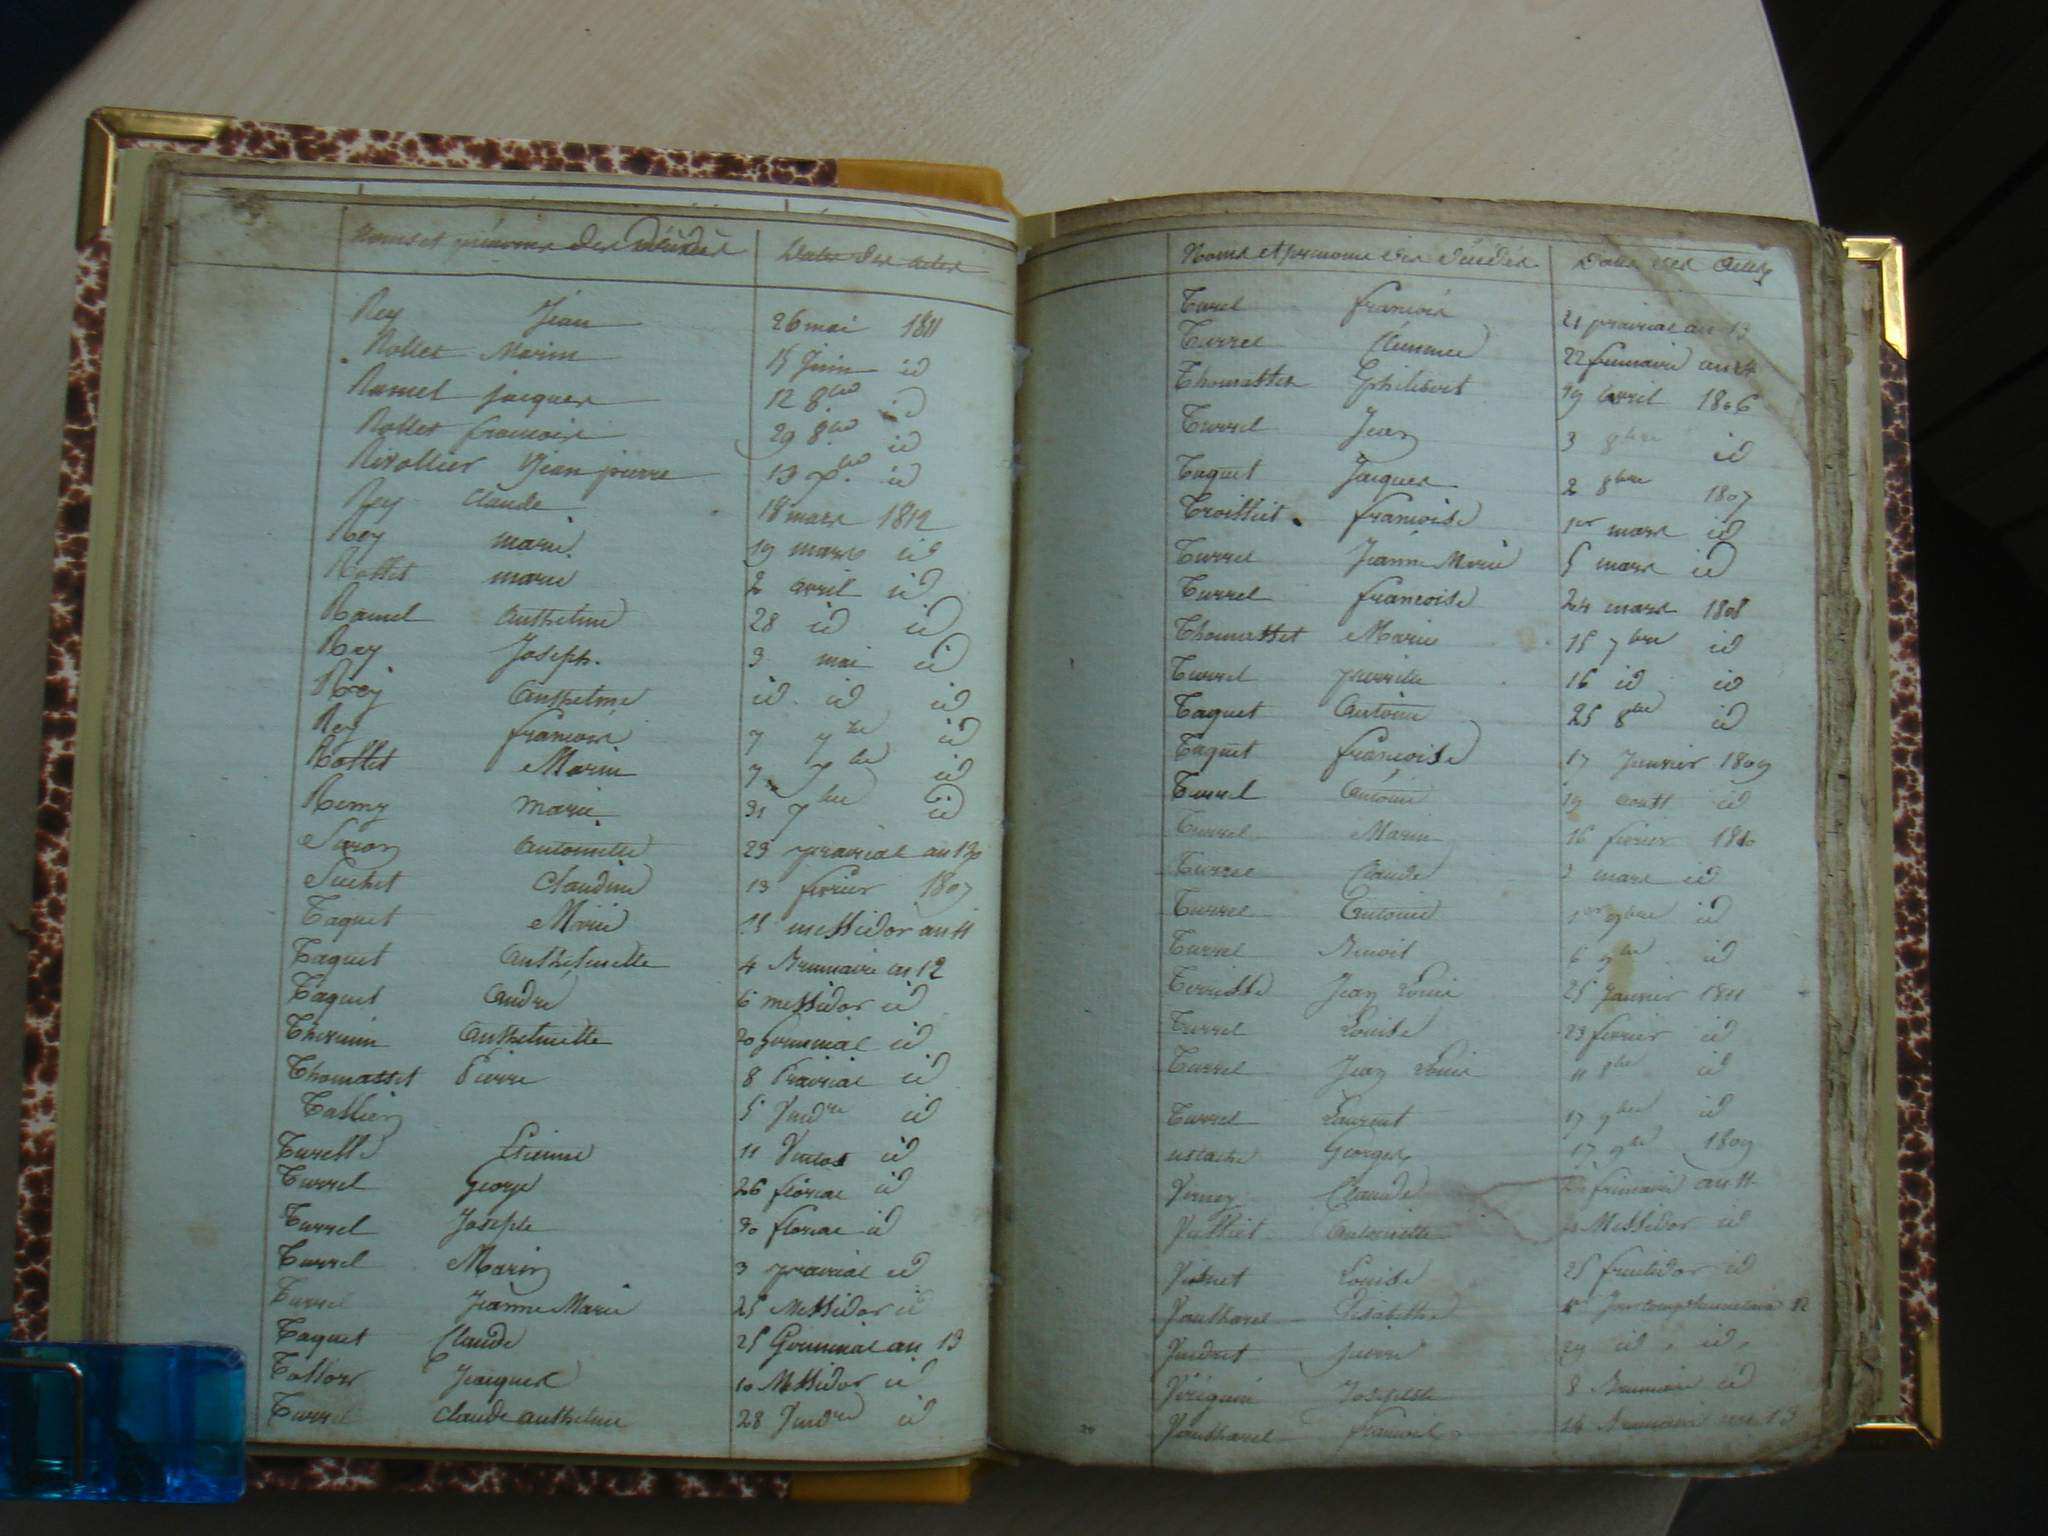 Noms et prénoms des décédés Date des actes
Rey Jean 26 mai 1811
Rollet Marin 15 Juin id
Ramel jacques 12 8bre id
Rollet francois 29 8bre id
Rivollier Jean pierre 13 id
Rey Claude 18 mars 1812
Rey marie 19 mars id
Rollet marie 2 avril id
Ramel Anthelme 28 id id
Rey Joseph. 3 mai id
Rey Anthelme id id id
Rey francois 7 7bre id
Rollet Marin 7 7bre id
Remy marie 31 7bre id
Saron Antoinette 23 prairial an 13
Suchet Claudine 13 fevrier 1807
Taquet Marie 15 messidor an 11
Taquet Anthelmette 4 Brumaire an 12
Taquet André 6 messidor id
Thevenin Anthelmette 20 Germinal id
Thomasset Pierre 8 Prairial id
Tallien 5 Vendre id
Turelle Etienne 11 Ventos id
Turrel George 26 floreal id
Turrel Josephe 30 floreal id
Turrel Marin 3 prairial id
Turrel Jeanne Marie 25 Messidor id
Taquet Claude 25 Germinal an 13
Jacques 10 Messidor id
Turrel Claude anthelme 28 Vendre id
Noms et prenoms des décédés Date des Actes
Turel francois 21 prairial an 13
Turrel Clemence 22 frimaire an 14
Thomasset philibert 19 avril 1806
Turrel Jean 3 8bre id
Taquet Jacques 2 8bre 1807
Troilliet francoise 1er mars id
Turrel Jeanne Marie 5 mars id
Turrel francoise 24 mars 1808
Thomasset Marie 15 7bre id
Turrel pierrette 16 id id
Taquet Antoine 25 8bre id
Taquet francoise 17 Janvier 1809
Turrel Antoine 19 aoust id
Turrel Marin 16 fevrier 1810
Turrel Claude 3 mars id
Turrel Antoine 1er 9bre id
Turrel Benoit 6 9bre id
Terrisse Jean Louis 25 Janvier 1811
Turrel Louise 23 fevrier id
Turrel Jean Louis 11 8bre id
Turrel Laurent 17 9bre id
ustache Georges 17 9bre 1809
Verney Claude frimaire an 11
Antoinette Messidor id
Violet Louise 25 fructidor id
Vautharel Elisabethe 1er Jour complementaire 12
Vindret pierre 29 id, id,
Josephte 8 Brumaire id
Vautharel francois 14 Brumaire an 13